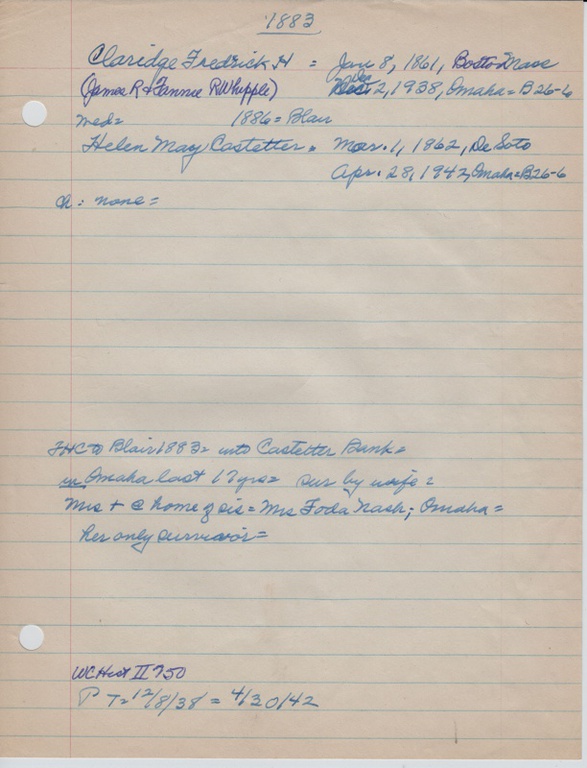 1883
Claridge Fredrick H = Jan 8, 1861, Boston Mass
(James R & Fannie R Whipple) Dec 2, 1938, Omaha = B26-6
med = 1886 = Blair
Helen May Castetter = Mar. 1, 1862, De Soto
Apr. 28, 1942, Omaha = B26-6
ch: none =
FHC to Blair 1883 = into Castetter Bank =
in Omaha last 17 yrs = sur by wife =
Mrs + @ home of sis = Mrs Foda Nash; Omaha =
her only survivor =
WC Hist II 750
P T = 12/8/38 = 4/30/42